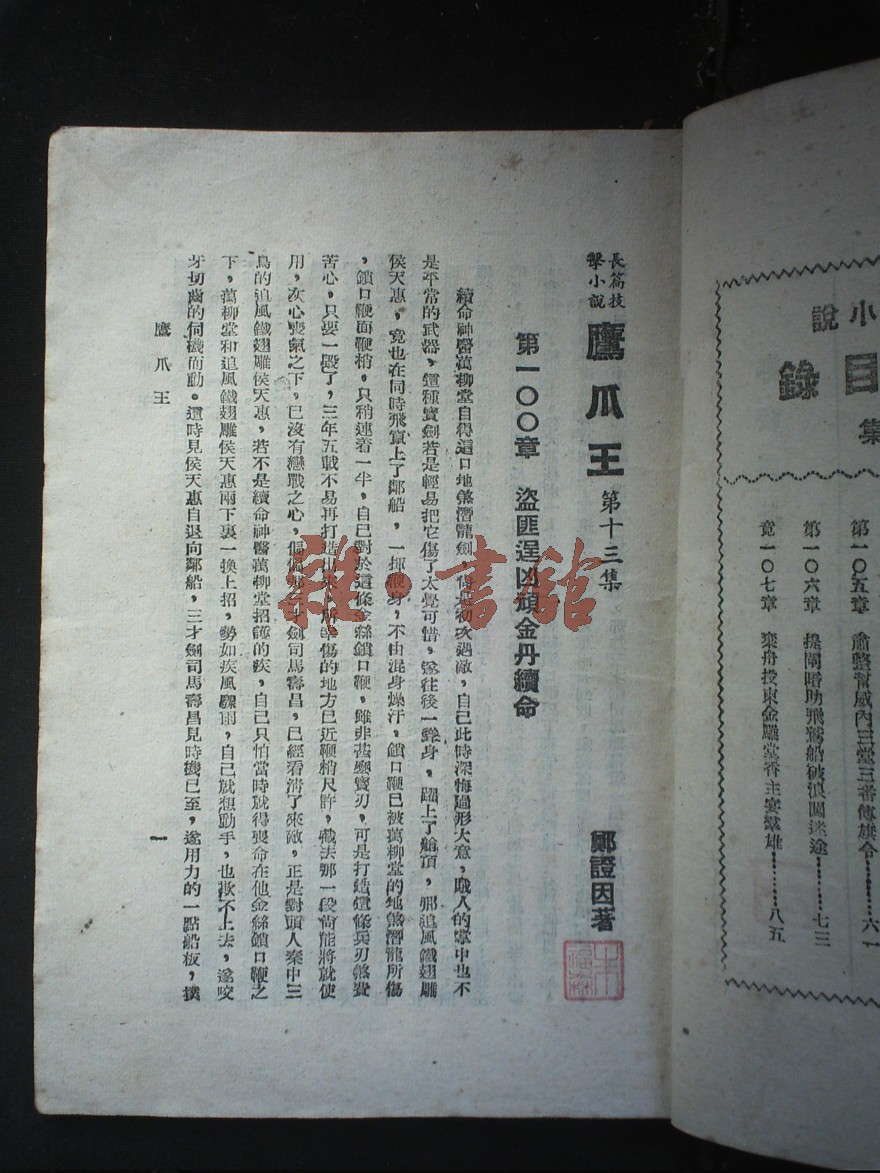 小
說
目錄
集
第一〇五章　肅整幫威內三堂三番傳旗令………六一
第一〇六章　提閘暗助飛鷲船破浪闖迷途………七三
竟一〇七章　棄舟投東金雕堂香主宴羣雄………八五
長篇技
擊小說
鷹爪王　第十三集
鄭證因著
第一〇〇章　盜匪逞凶頑金丹續命
續命神醫萬柳堂自得這口地煞潛龍劍，初次遇敵，自己此時深悔過形大意，敵人的掌中也不
是平常的武器，這種寶劍若是輕易把它傷了太覺可惜，遂往後一縱身，躍上了艙頂，那追風鐵翅雕
侯天惠，竟也在同時飛竄上了鄰船，一揮鞭身，不由混身燥汗，鎖口鞭已被萬柳堂的地煞潛龍所傷
，鎖口鞭面鞭梢，只稍連着一半，自己對於這條金絲鎖口鞭，雖非甚麼寶刃，可是打造這條兵刃煞費
苦心，只要一毀了，三年五載不易再打造出來，所幸傷的地方已近鞭梢尺許，截去那一段尙能將就使
用，灰心喪氣之下，已沒有戀戰之心，偏偏那三才劍司馬壽昌，已經看淸了來敵，正是對頭人秦中三
鳥的追風鐵翅雕侯天惠，若不是續命神醫萬柳堂招護的疾，自己只怕當時就得喪命在他金絲鎖口鞭之
下，萬柳堂和追風鐵翅雕侯天惠兩下裏一換上招，勢如疾風驟雨，自己就想動手，也欺不上去，遂咬
牙切齒的伺機而動。這時見侯天惠自退向鄰船，三才劍司馬壽昌見時機已至，遂用力的一點船板，撲
鷹爪王
一
雜·書館